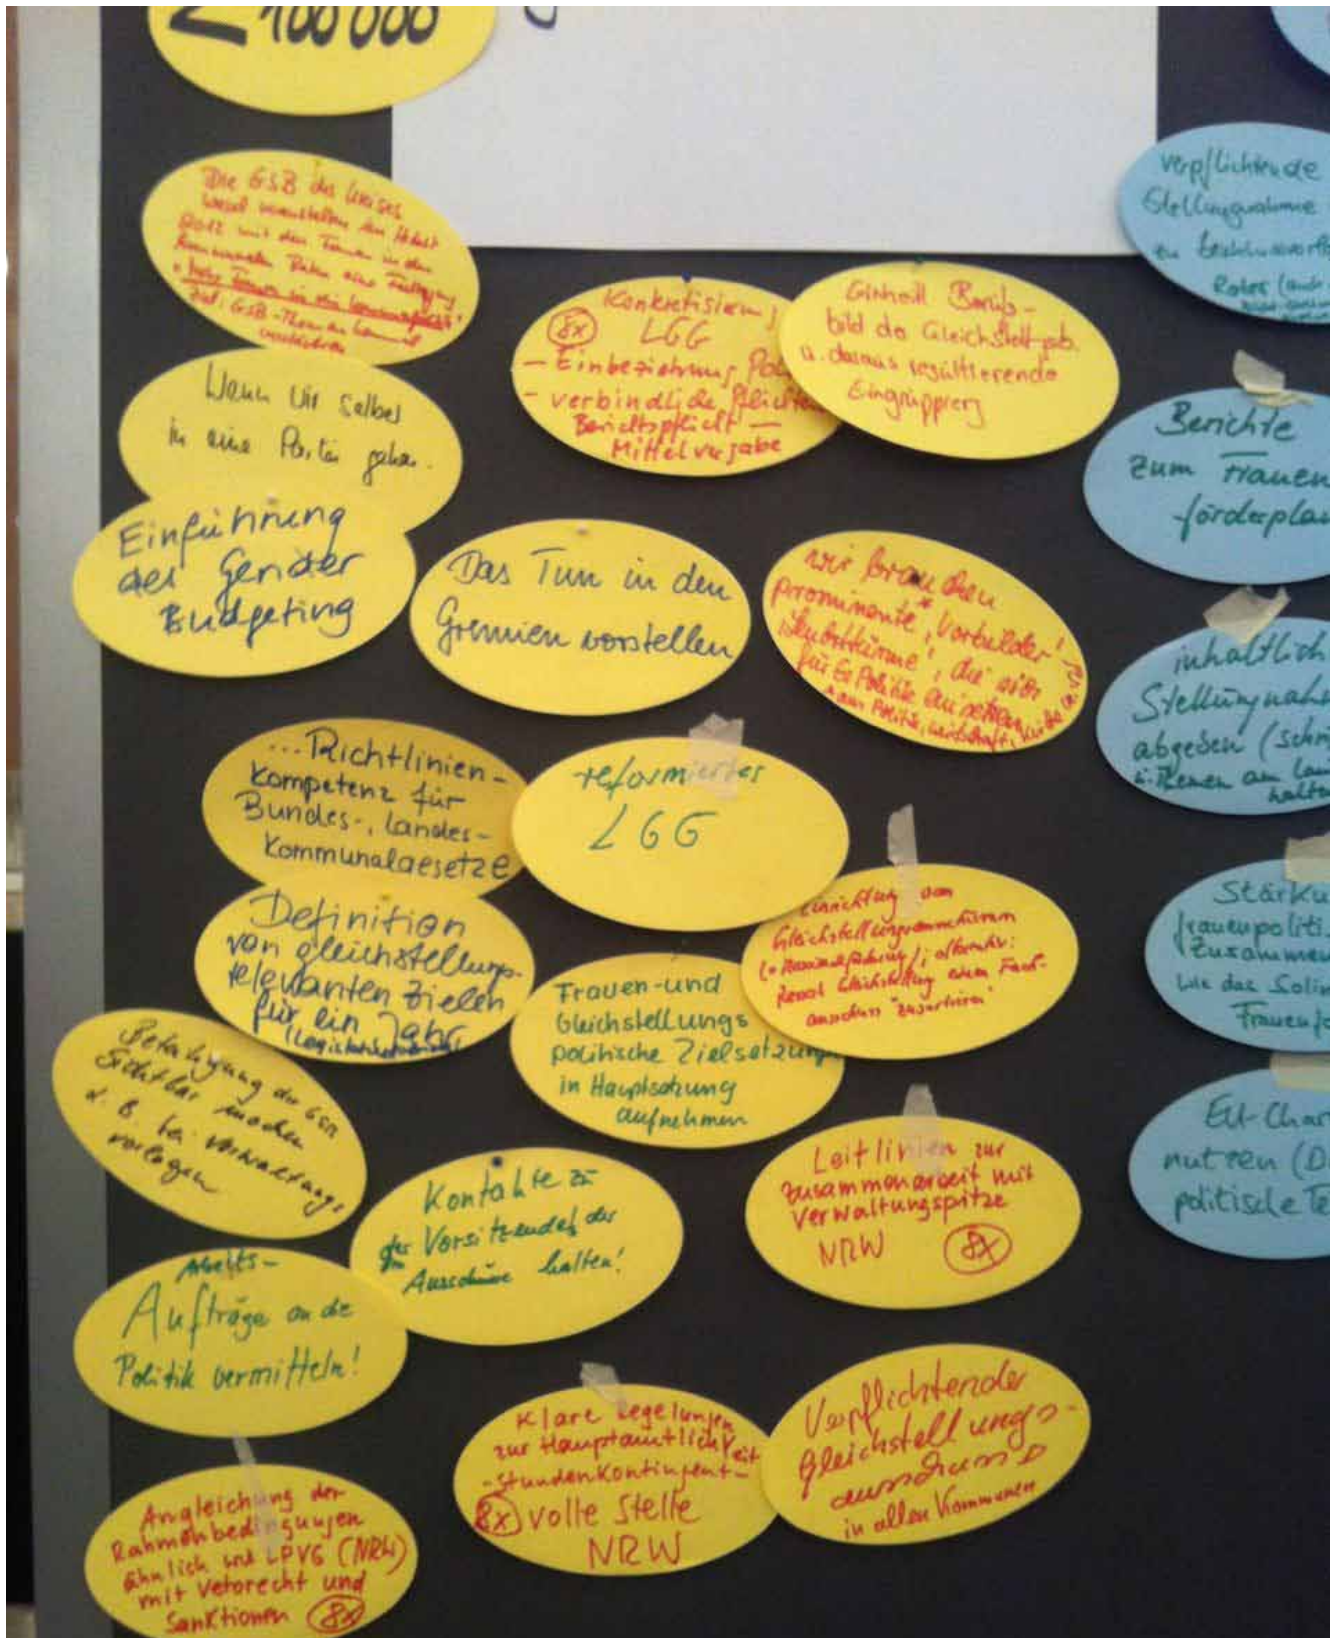 100 000
Die GSB des Kreises
Wesel veranstalten im Herbst
2012 mit den Frauen in den
kommunalen Räten eine Fachtagung
"Mehr Frauen in die Kommunalpolitik"
Ziel: GSB-Themen
Wenn wir selber
in eine Partei gehen.
Einführung
des Gender
Budgeting
Konkretisierung
8x LGG
- Einbeziehung Pol
- verbindliche Pflichten
Berichtspflicht —
Mittelvergabe
Einheitl Berufs-
bild der Gleichstell
u. daraus resultierende
Eingruppierg
Das Tun in den
Gremien vorstellen
wir brauchen
prominente "Vorbilder"
"Leuchttürme", die sich
für Politik einsetzen
* aus Politik, Wirtschaft,
...Richtlinien-
kompetenz für
Bundes-, Landes-
Kommunalgesetze
reformiertes
LGG
Definition
von gleichstellungs-
relevanten Zielen
für ein Jahr
Einrichtung von
Gleichstellungsausschüssen
alternativ:
Gleichstellung einem Fach-
ausschuss "zuordnen"
Frauen- und
Gleichstellungs
politische Zielsetzung
in Hauptsatzung
aufnehmen
Beteiligung der GSB
sichtbar machen
z. B. bei Verwaltungs
vorlagen
Kontakte zu
der Vorsitzenden der
Ausschüsse halten!
Leitlinien zur
Zusammenarbeit mit
Verwaltungspitze
NRW 8x
Arbeits-
Aufträge an die
Politik vermitteln!
Klare Regelungen
zur Hauptamtlichkeit
- Stundenkontingent -
8x volle Stelle
NRW
Verpflichtender
Gleichstellungs-
ausschuss
in allen Kommunen
Angleichung der
Rahmenbedingungen
ähnlich wie LPVG (NRW)
mit Vetorecht und
Sanktionen 8x
verpflichtende
Stellungnahme
zu
Rates
Berichte
zum Frauen
-förderplan
inhaltlich
Stellungnah
abgeben (Schri
u. Themen am Lau
halten
Stärku
frauenpoliti
Zusammen
wie das Solin
Frauenfo
EU-Char
nutzen (D
politische Te